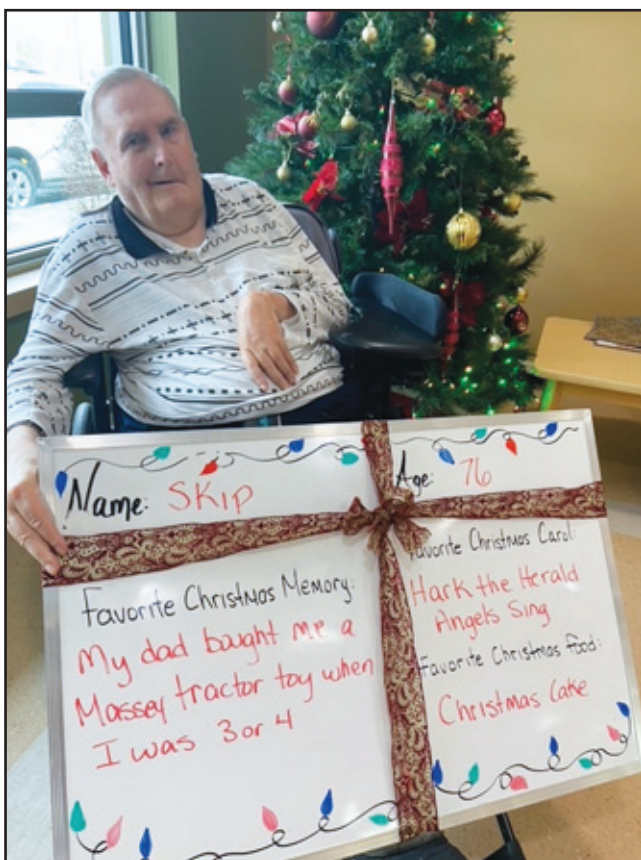 Name: Skip
Age: 76
Favorite Christmas Memory:
My dad bought me a
Massey tractor toy when
I was 3 or 4
Favorite Christmas Carol:
Hark the Herald
Angels Sing
Favorite Christmas food:
Christmas Cake